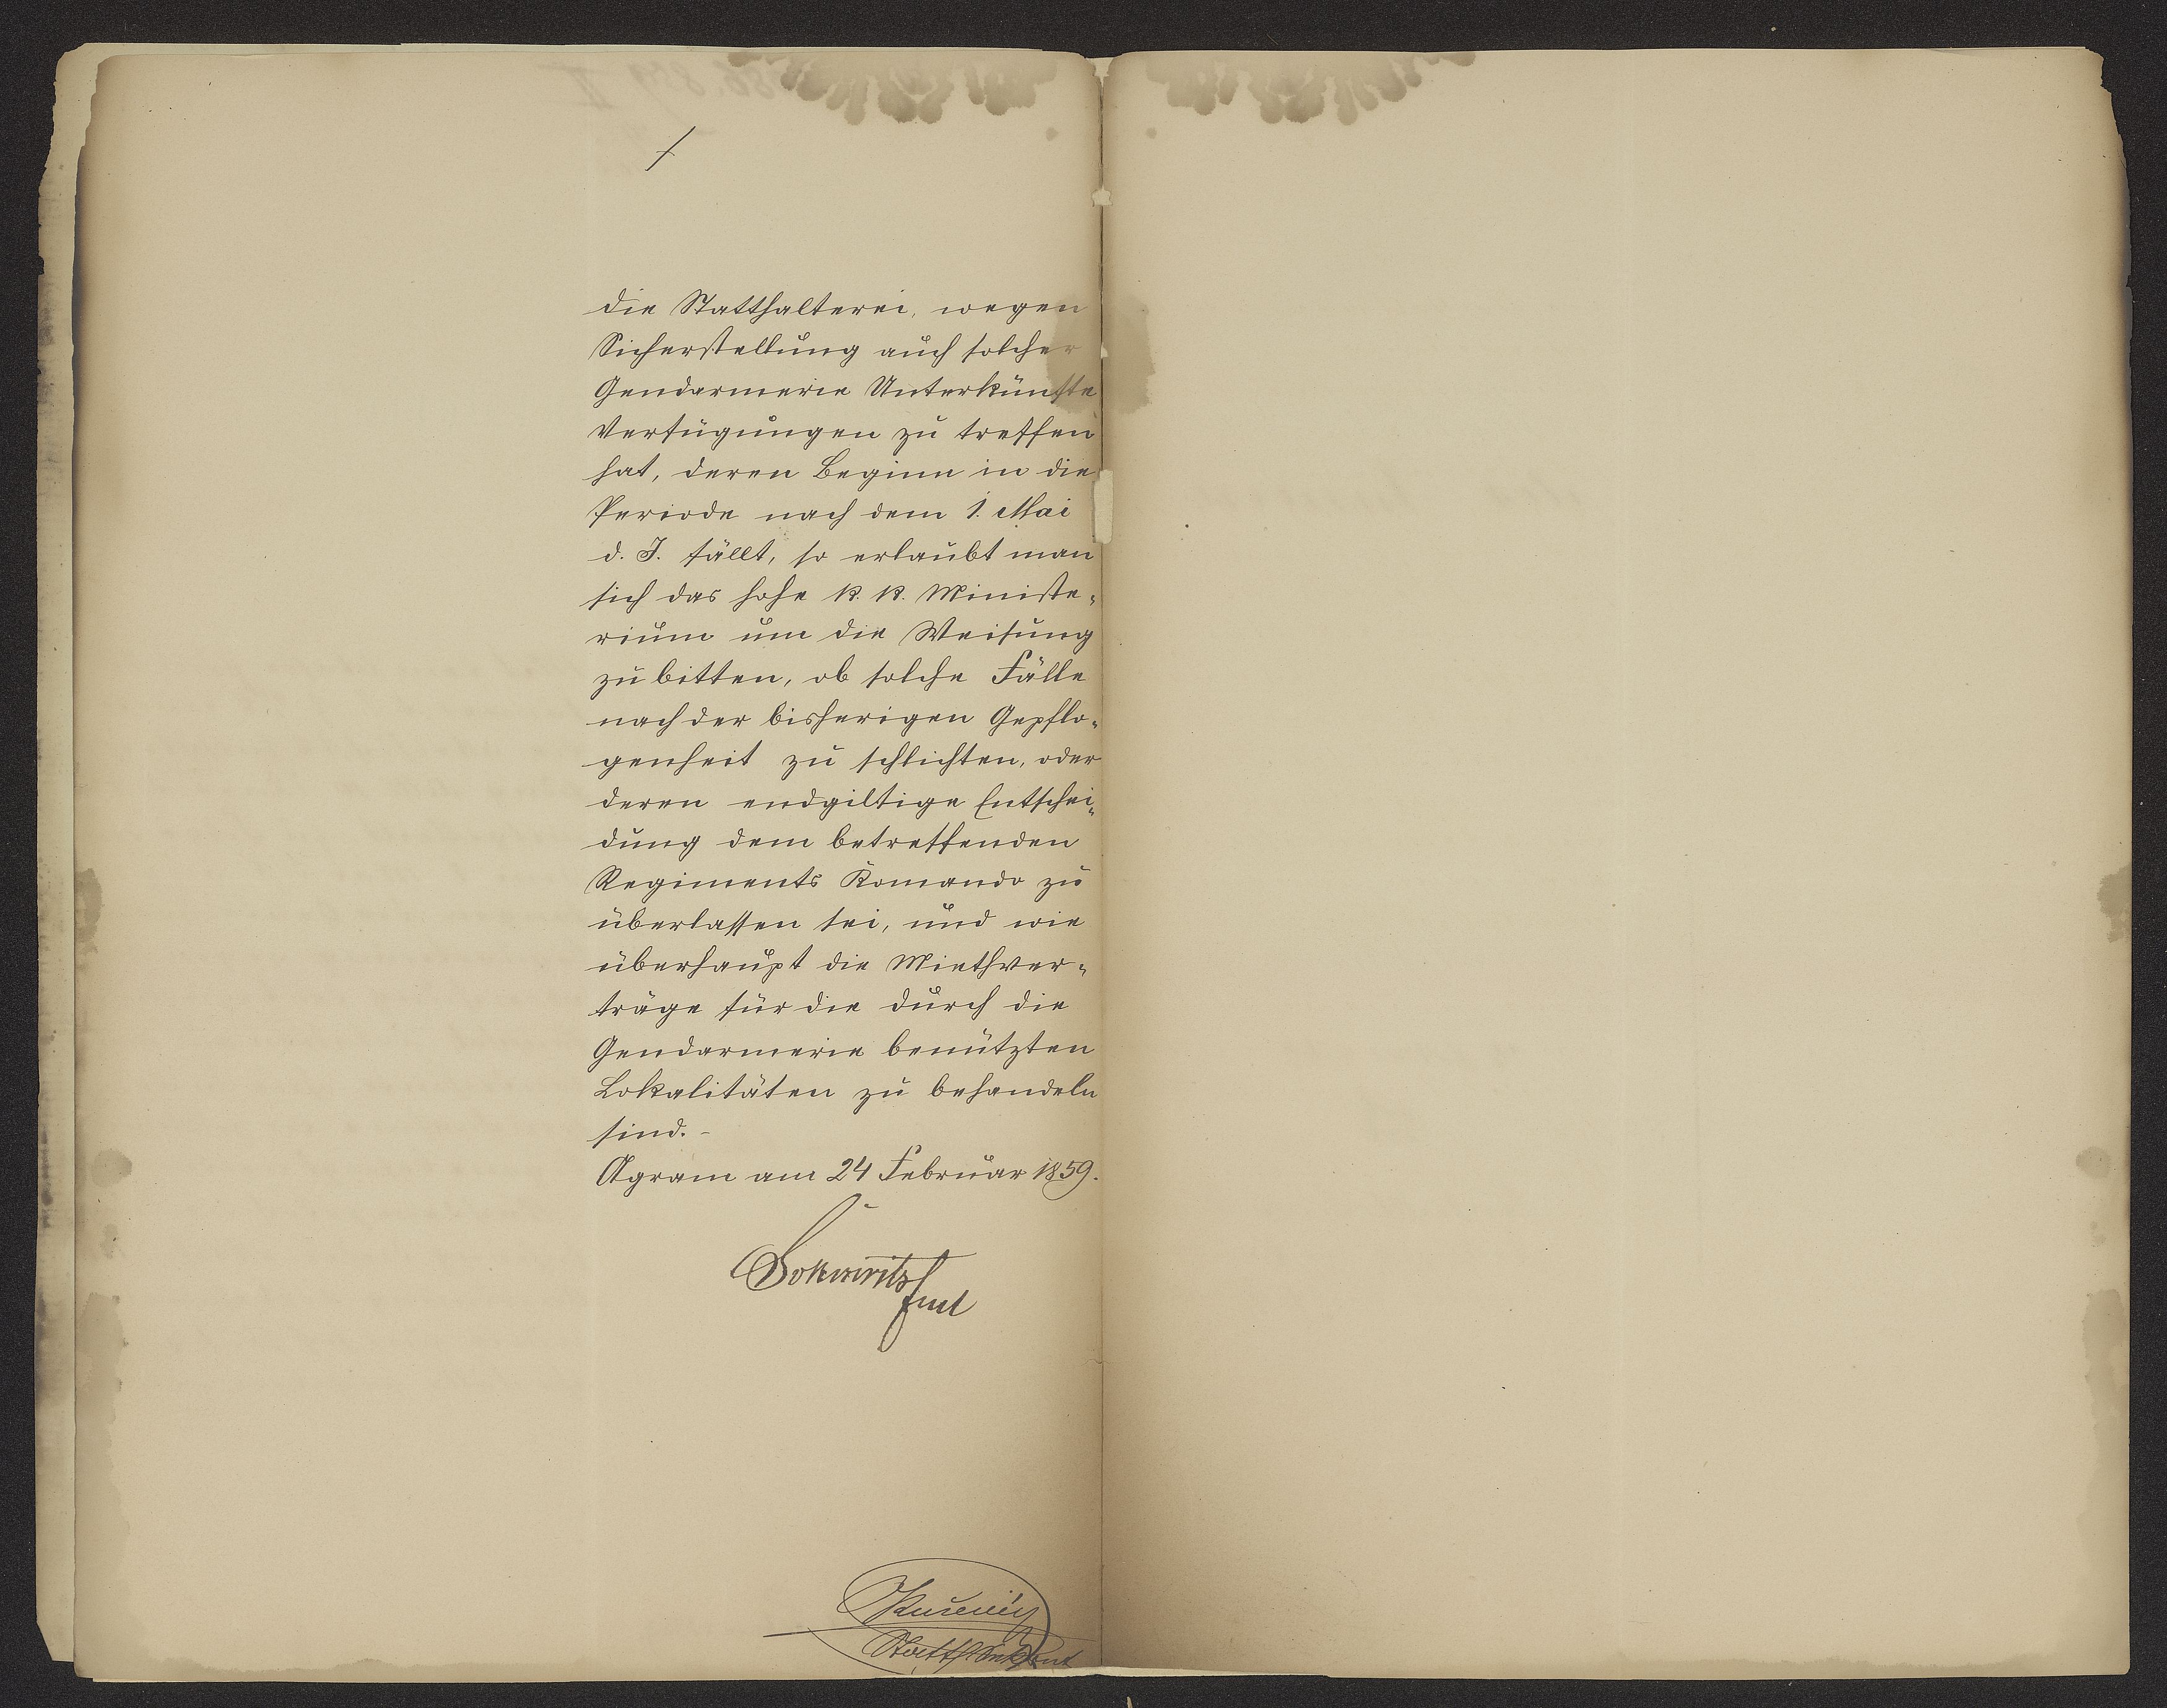 die Statthalterei, wegen
Sicherstellung auch solcher
Gendarmerie Unterkünfte
Verfügungen zu treffen
hat, deren Beginn in die
Periode nach dem 1. Mai
d. J. fällt, so erlaubt man
sich das hohe k. k. Ministe-
rium um die Weisung
zu bitten, ob solche Fälle
nach der bisherigen Gepflo-
genheit zu schlichten, oder
deren endgiltige Entschei-
dung dem betreffenden
Regiments Komando zu
überlassen sei, und wie
überhaupt die Miethver-
träge für die durch die
Gendarmerie benützten
Lokalitäten zu behandeln
sind.-
Agram am 24 Februar 1859.